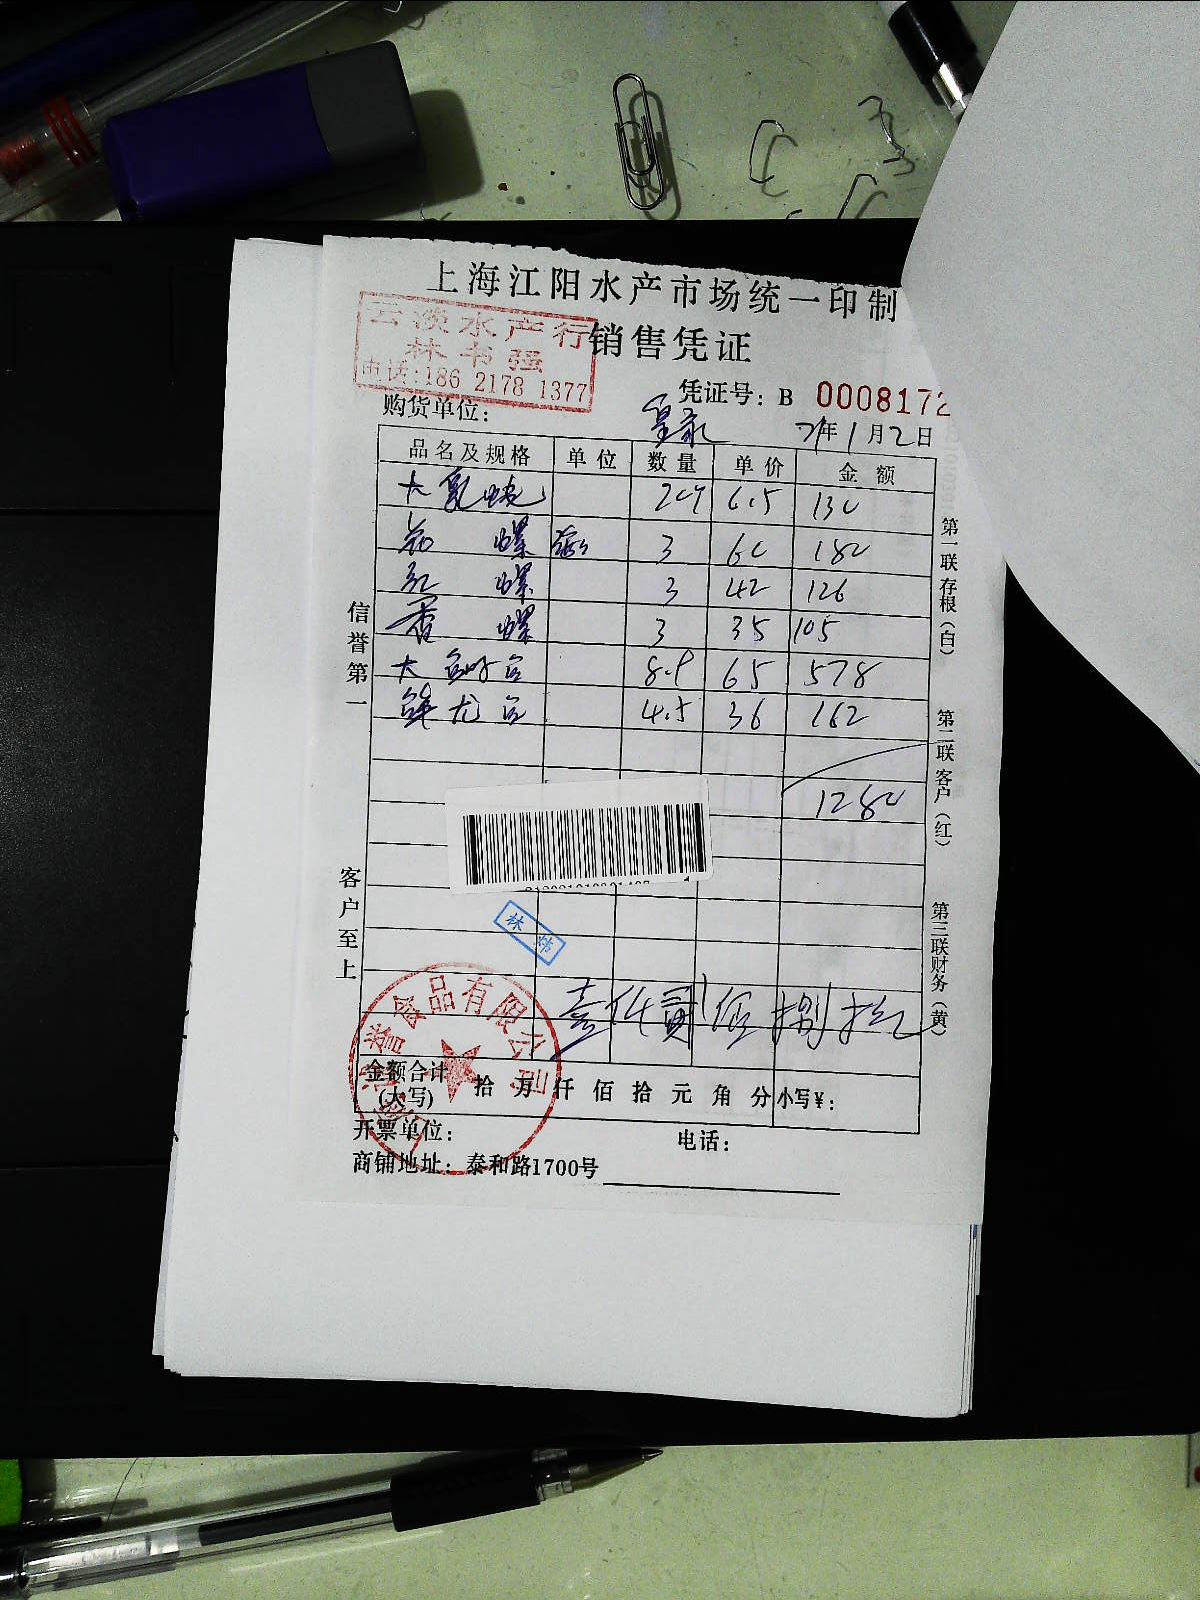 上海江阳水产市场统一印制
云淡水产行
林书强
电话:186 2178 1377
销售凭证
凭证号: B 0008172
购货单位: 皇家 21年1月2日
品名及规格 单位 数量 单价 金额
大 20个 6.5 130
花螺 3 60 180
红螺 3 42 126
香螺 3 35 105
大 8.9 65 578
鲜龙 4.5 36 162
1280
信誉第一
客户至上
第一联存根(白)
第二联客户(红)
第三联财务(黄)
林炜
壹仟贰佰捌拾元
食品有限公司
金额合计(大写) 拾万仟佰拾元角分 小写¥:
开票单位: 电话:
商铺地址: 泰和路1700号